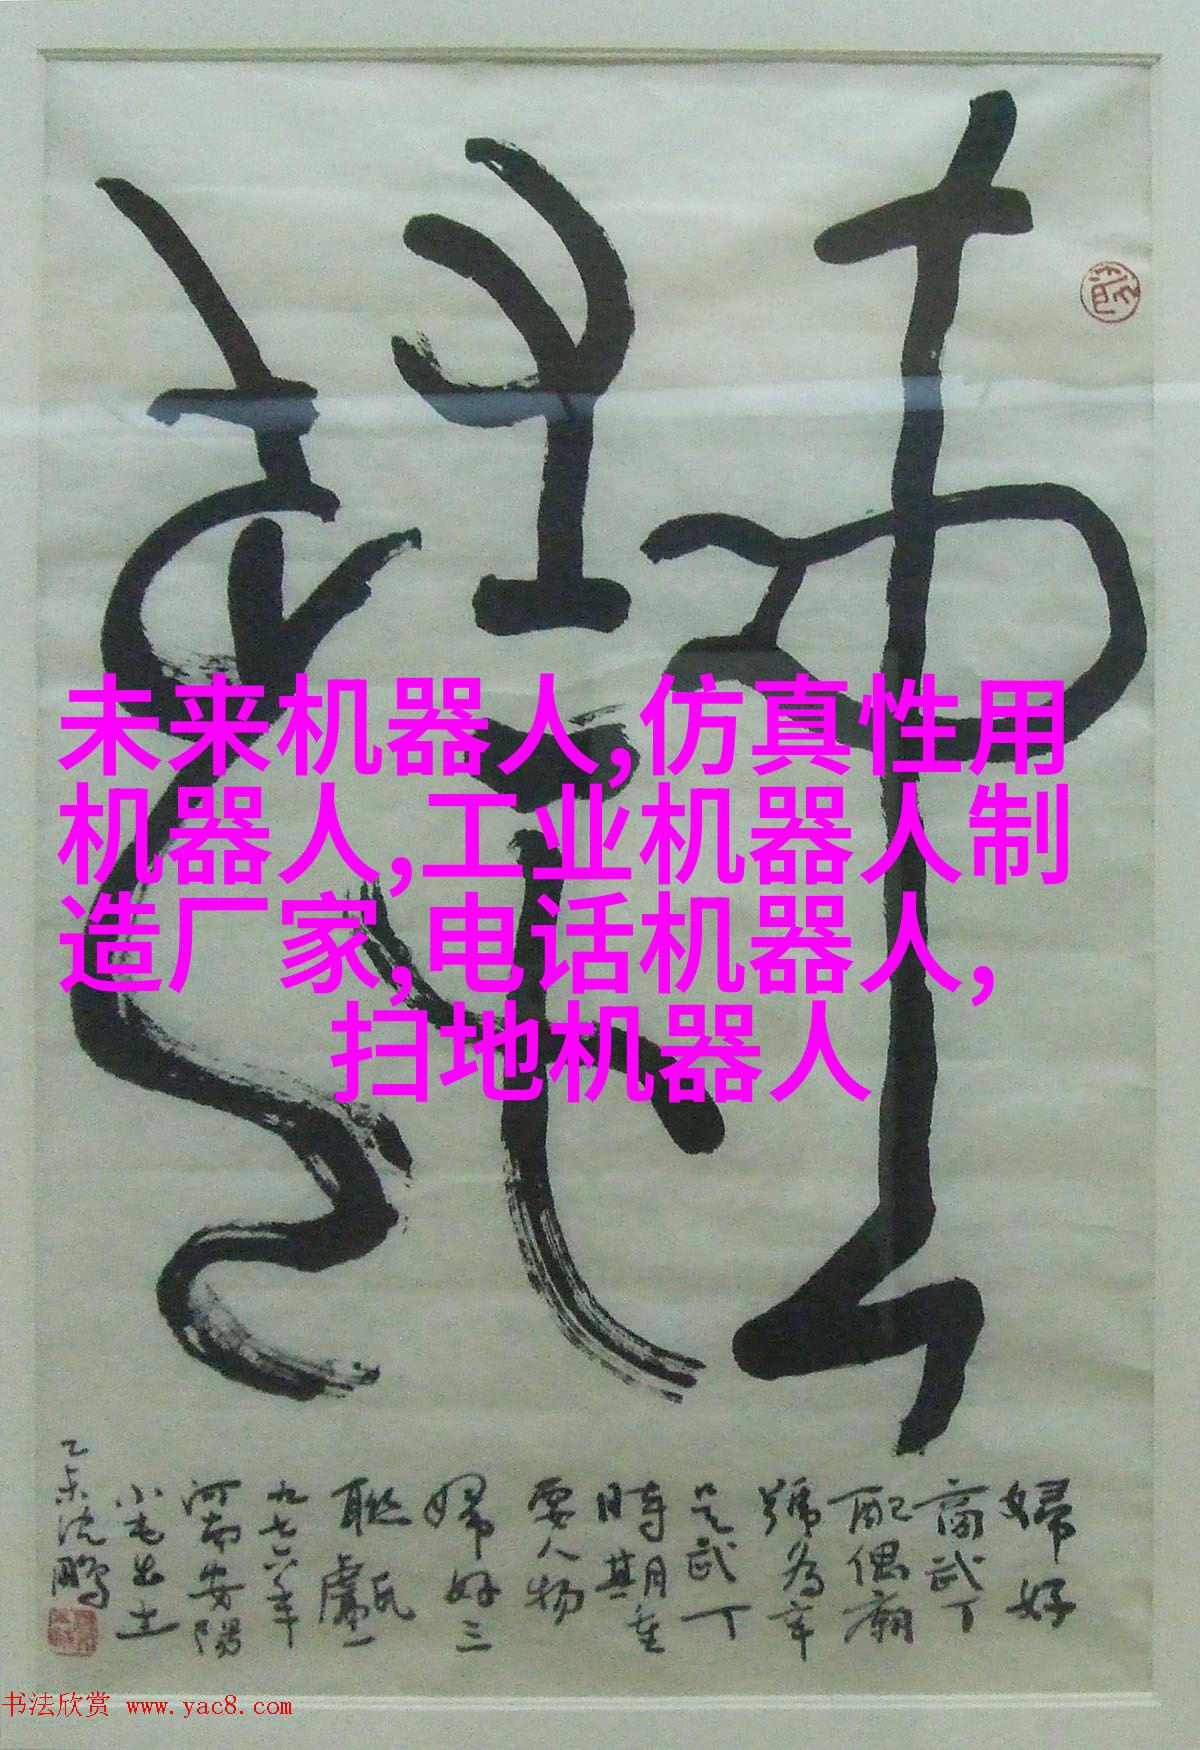 未来机器人,仿真性用
机器人,工业机器人制
造厂家,电话机器人,
扫地机器人
婦好
商武丁
配偶廟
號为辛
是武丁
時期重
要人物
婦好三
聯甗一
九七六年
河南安陽
小屯出土
乙未沈鹏
书法欣赏 www.yac8.com